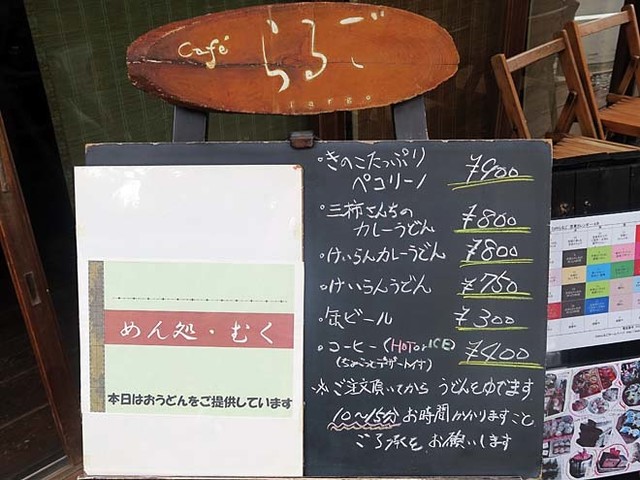 Café らるご
largo
めん処・むく
本日はおうどんをご提供しています
・きのこたっぷり
ペコリーノ ¥900
・三柿さんちの
カレーうどん ¥800
・けいらんカレーうどん ¥800
・けいらんうどん ¥750
・缶ビール ¥300
・コーヒー(HOTorICE) ¥400
(ちょこっとデザート付)
※ご注文頂いてから うどんをゆでます
10〜15分お時間かかりますこと
ご了承を お願いします